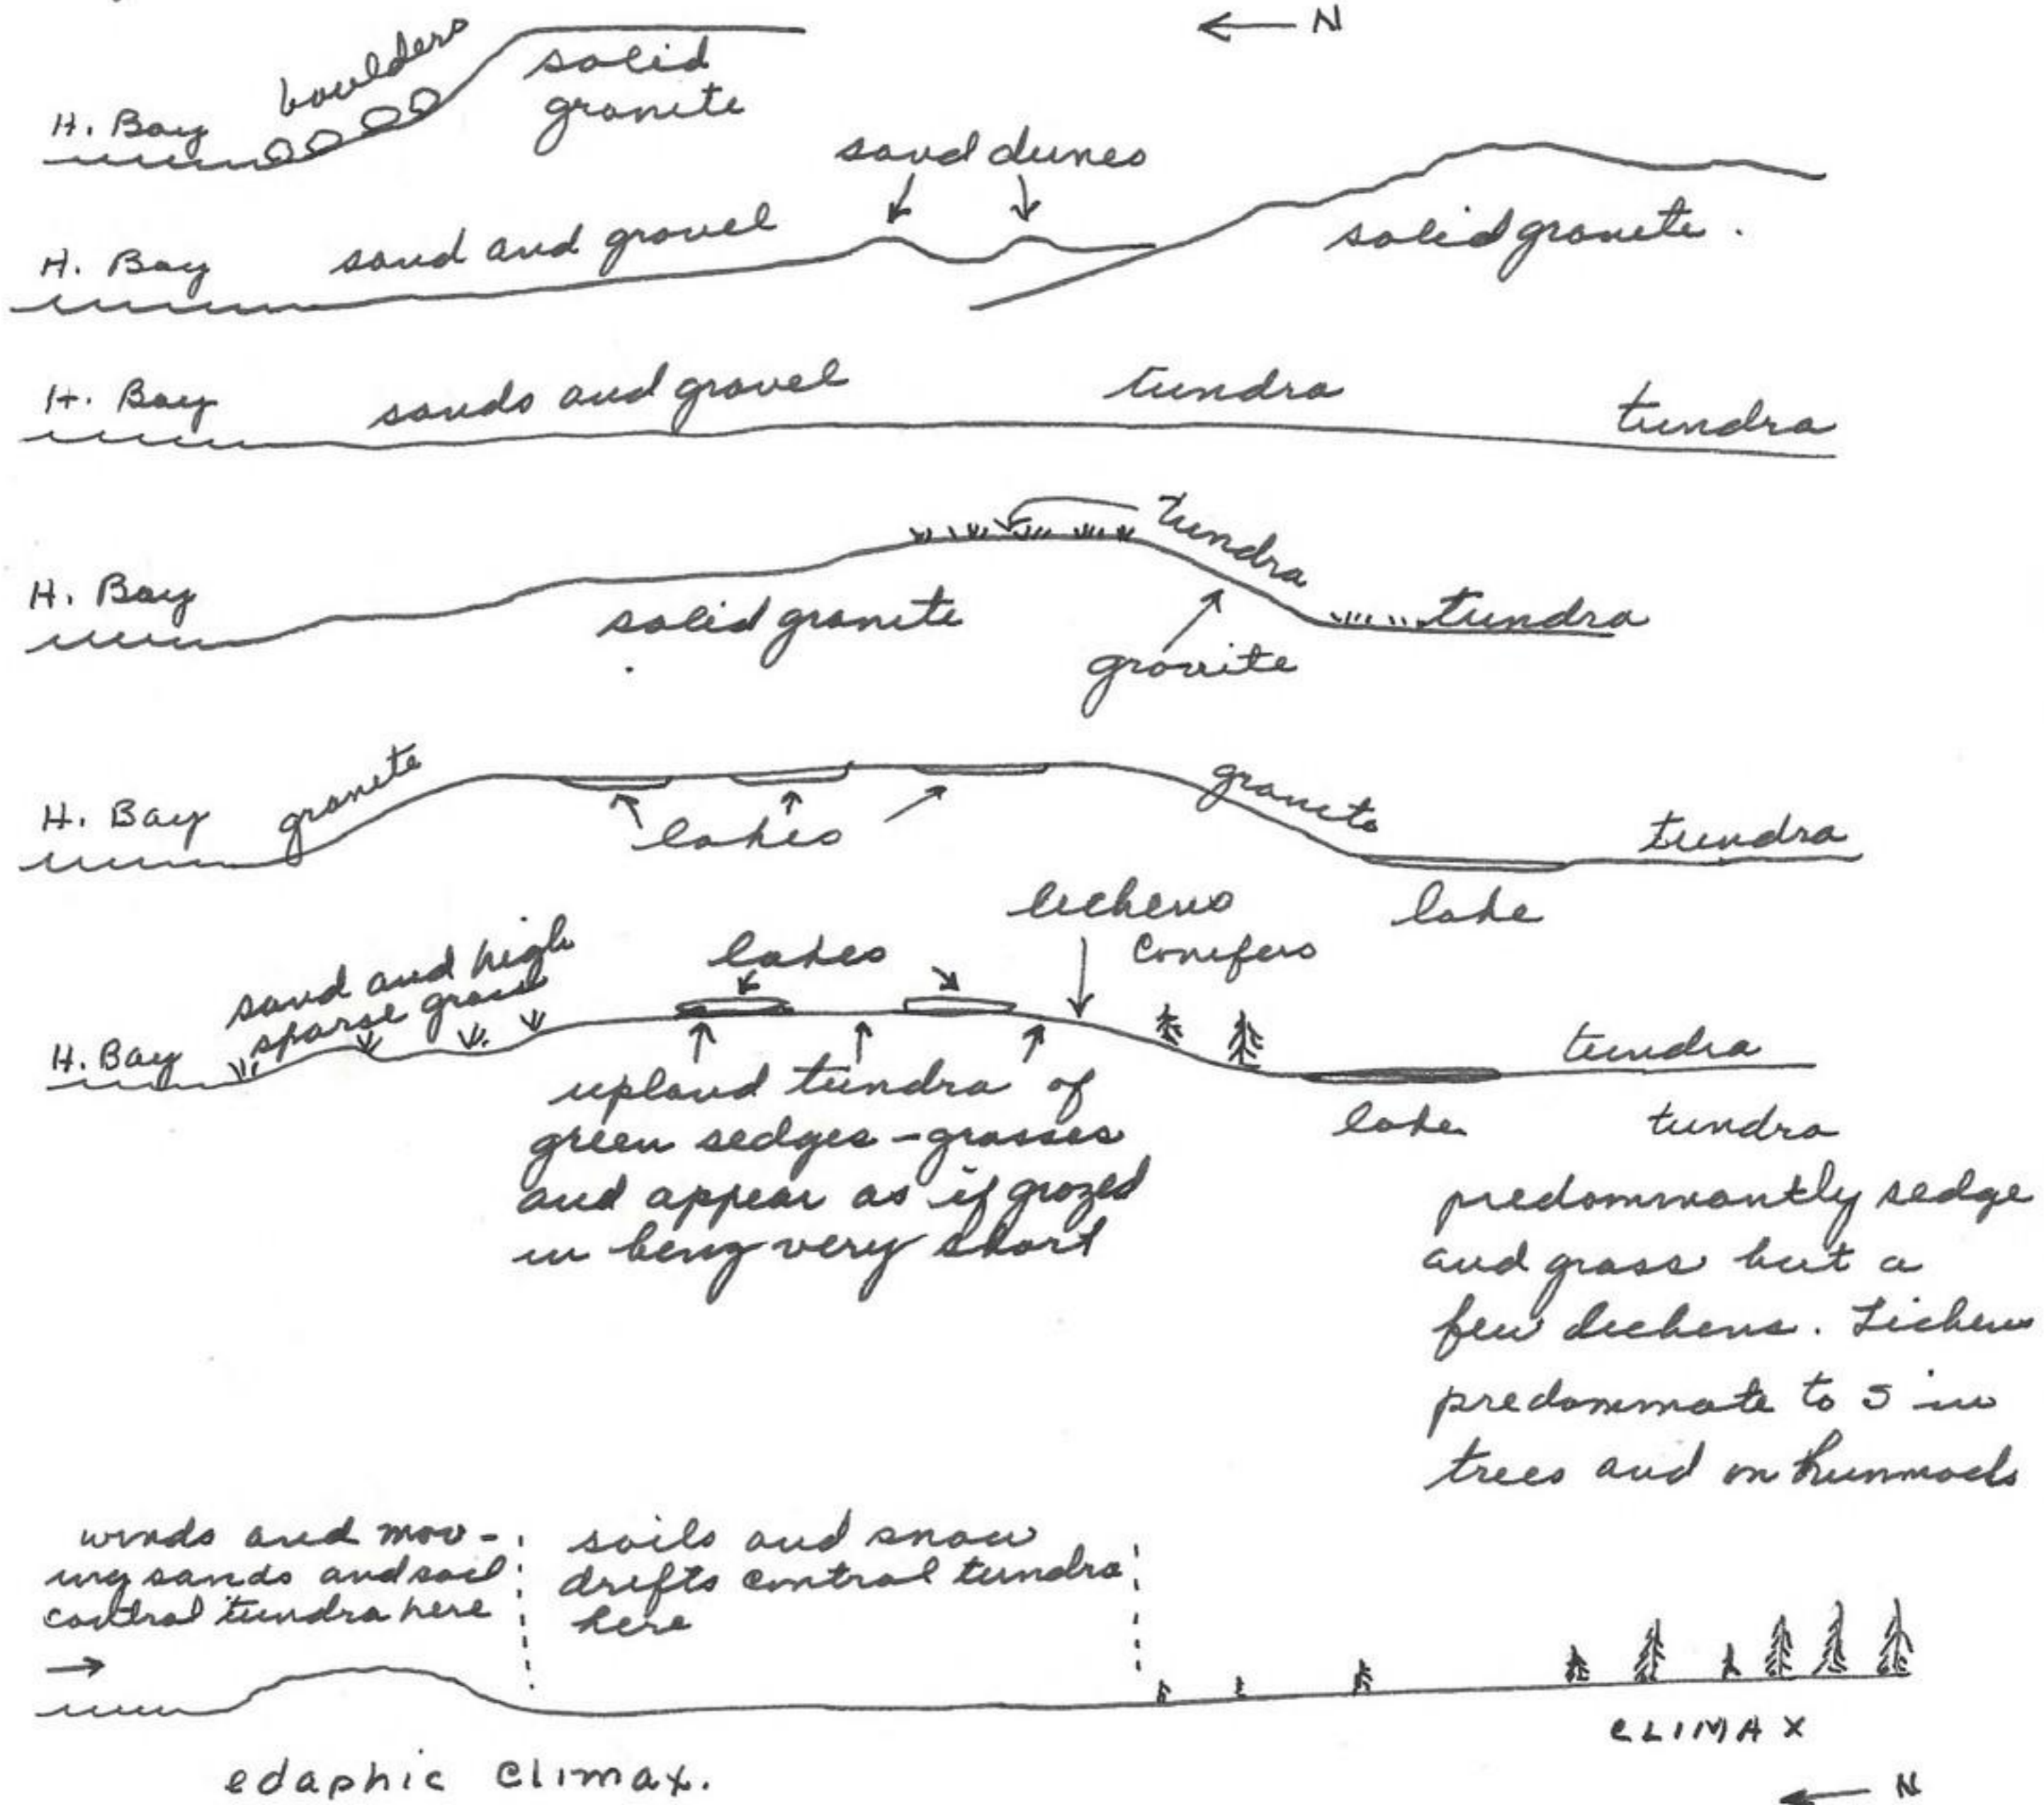 ← N
boulders
solid
granite
H. Bay
sand dunes
H. Bay sand and gravel
solid granite.
H. Bay sands and gravel tundra tundra
tundra
H. Bay
solid granite
tundra
granite
H. Bay granite
granite
lakes
tundra
lake
lichens
conifers
lakes
sand and high
sparse grass
H. Bay
tundra
upland tundra of
green sedges - grasses
and appear as if grazed
in being very short
lake
tundra
predominantly sedge
and grass but a
few lichens. Lichens
predominate to S in
trees and on hummocks
winds and mov-
ing sands and soil
control tundra here
→
soils and snow
drifts control tundra
here
CLIMAX
edaphic climax.
← N